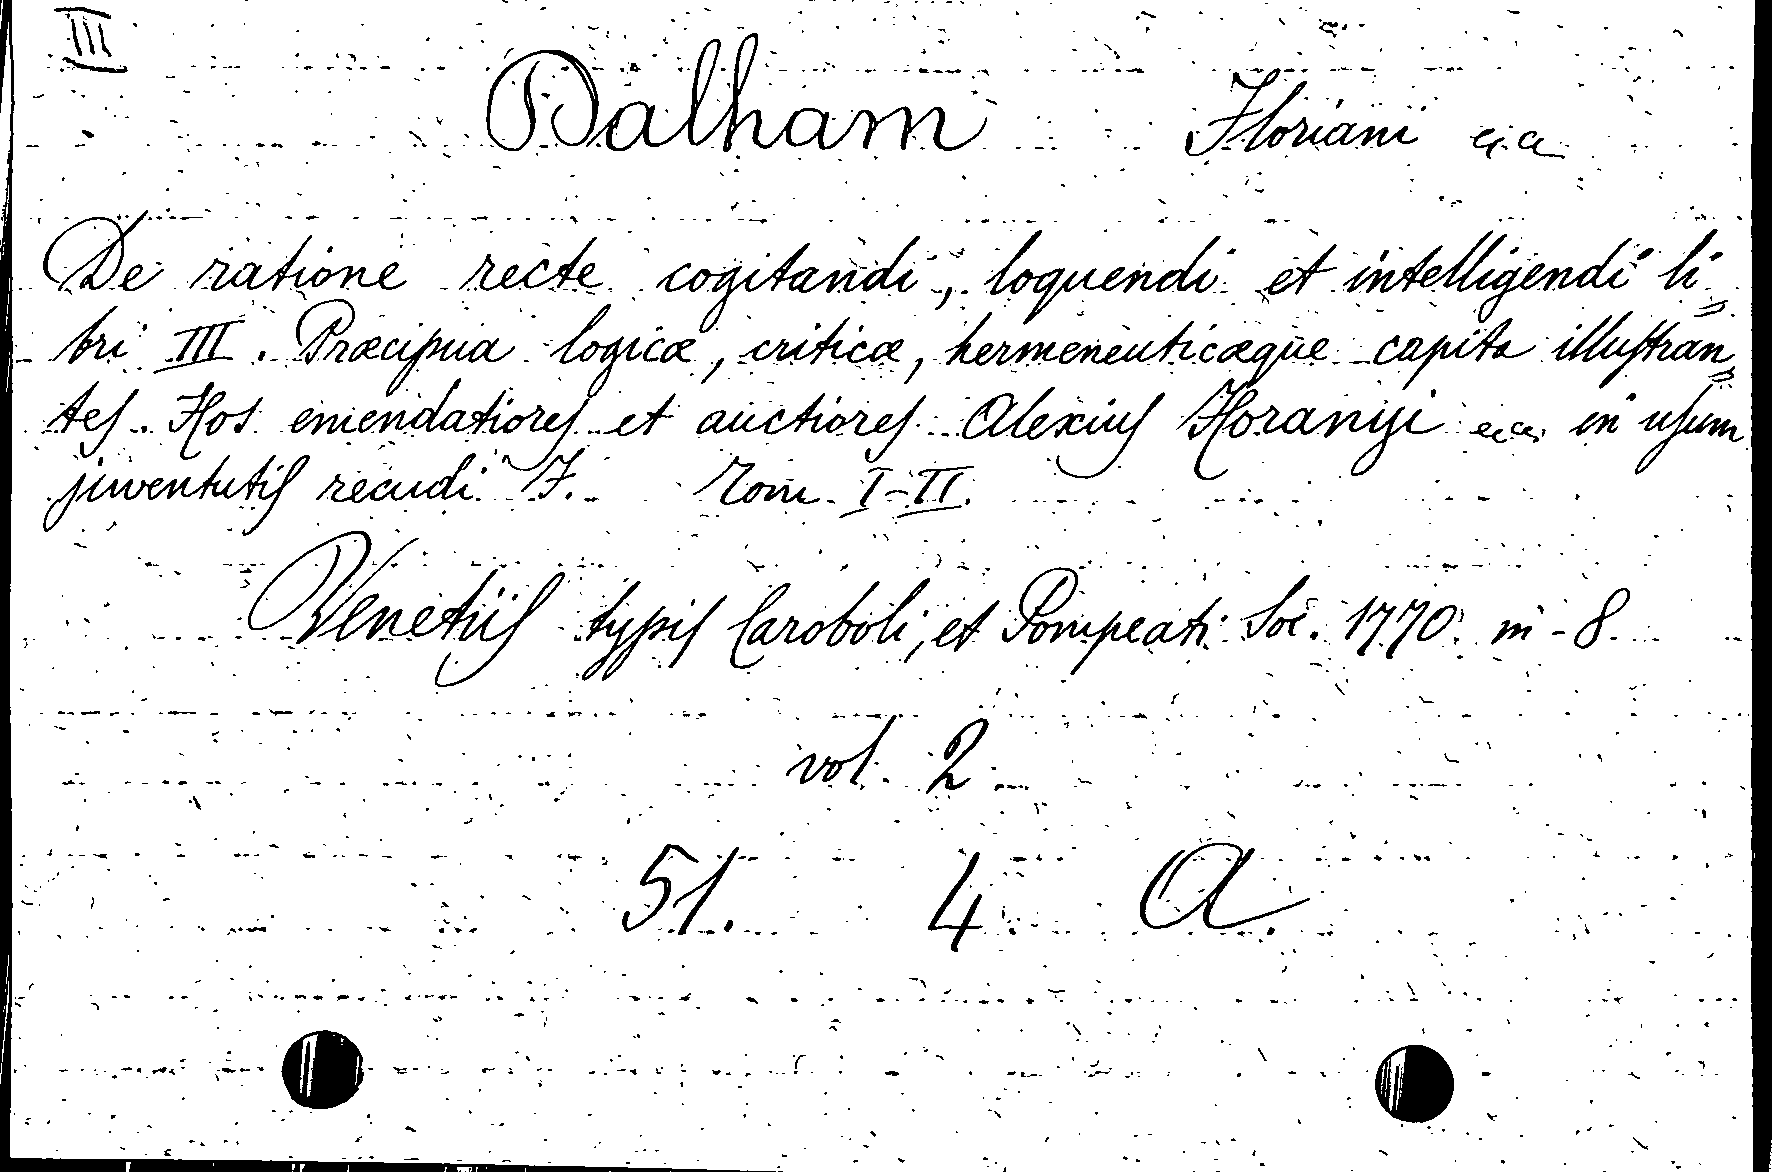 III
Dalham Floriani
De ratione recte cogitandi, loquendi et intelligendi li=
bri III. Præcipua logicæ, criticæ, hermeneuticæque capita illuſtran=
teſ. Hos emendatioreſ et auctioreſ Alexiuſ Horanyi in uſum
juventutiſ recudi F. Tom. I-II.
Venetiiſ typiſ Caroboli, et Pompeati Soc. 1770. in-8.
vol. 2
51. 4 A.